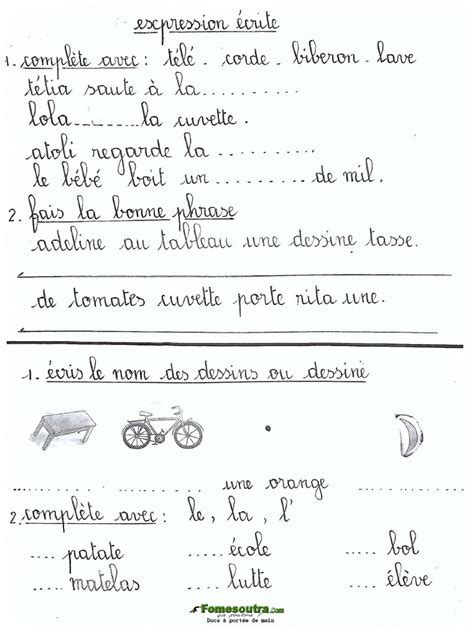 expression écrite
1. complète avec : télé - corde - biberon - lave
tétia saute à la..........
lola..........la cuvette.
atoli regarde la ..........
le bébé boit un ..........de mil.
2. fais la bonne phrase
adeline au tableau une dessine tasse.
de tomates cuvette porte rita une.
1. écris le nom des dessins ou dessine
.......... .......... une orange ..........
2. complète avec : le, la, l'
..... patate ..... école ..... bol
..... matelas ..... lutte ..... élève
Fomesoutra.com
ça soutra !
Docs à portée de main